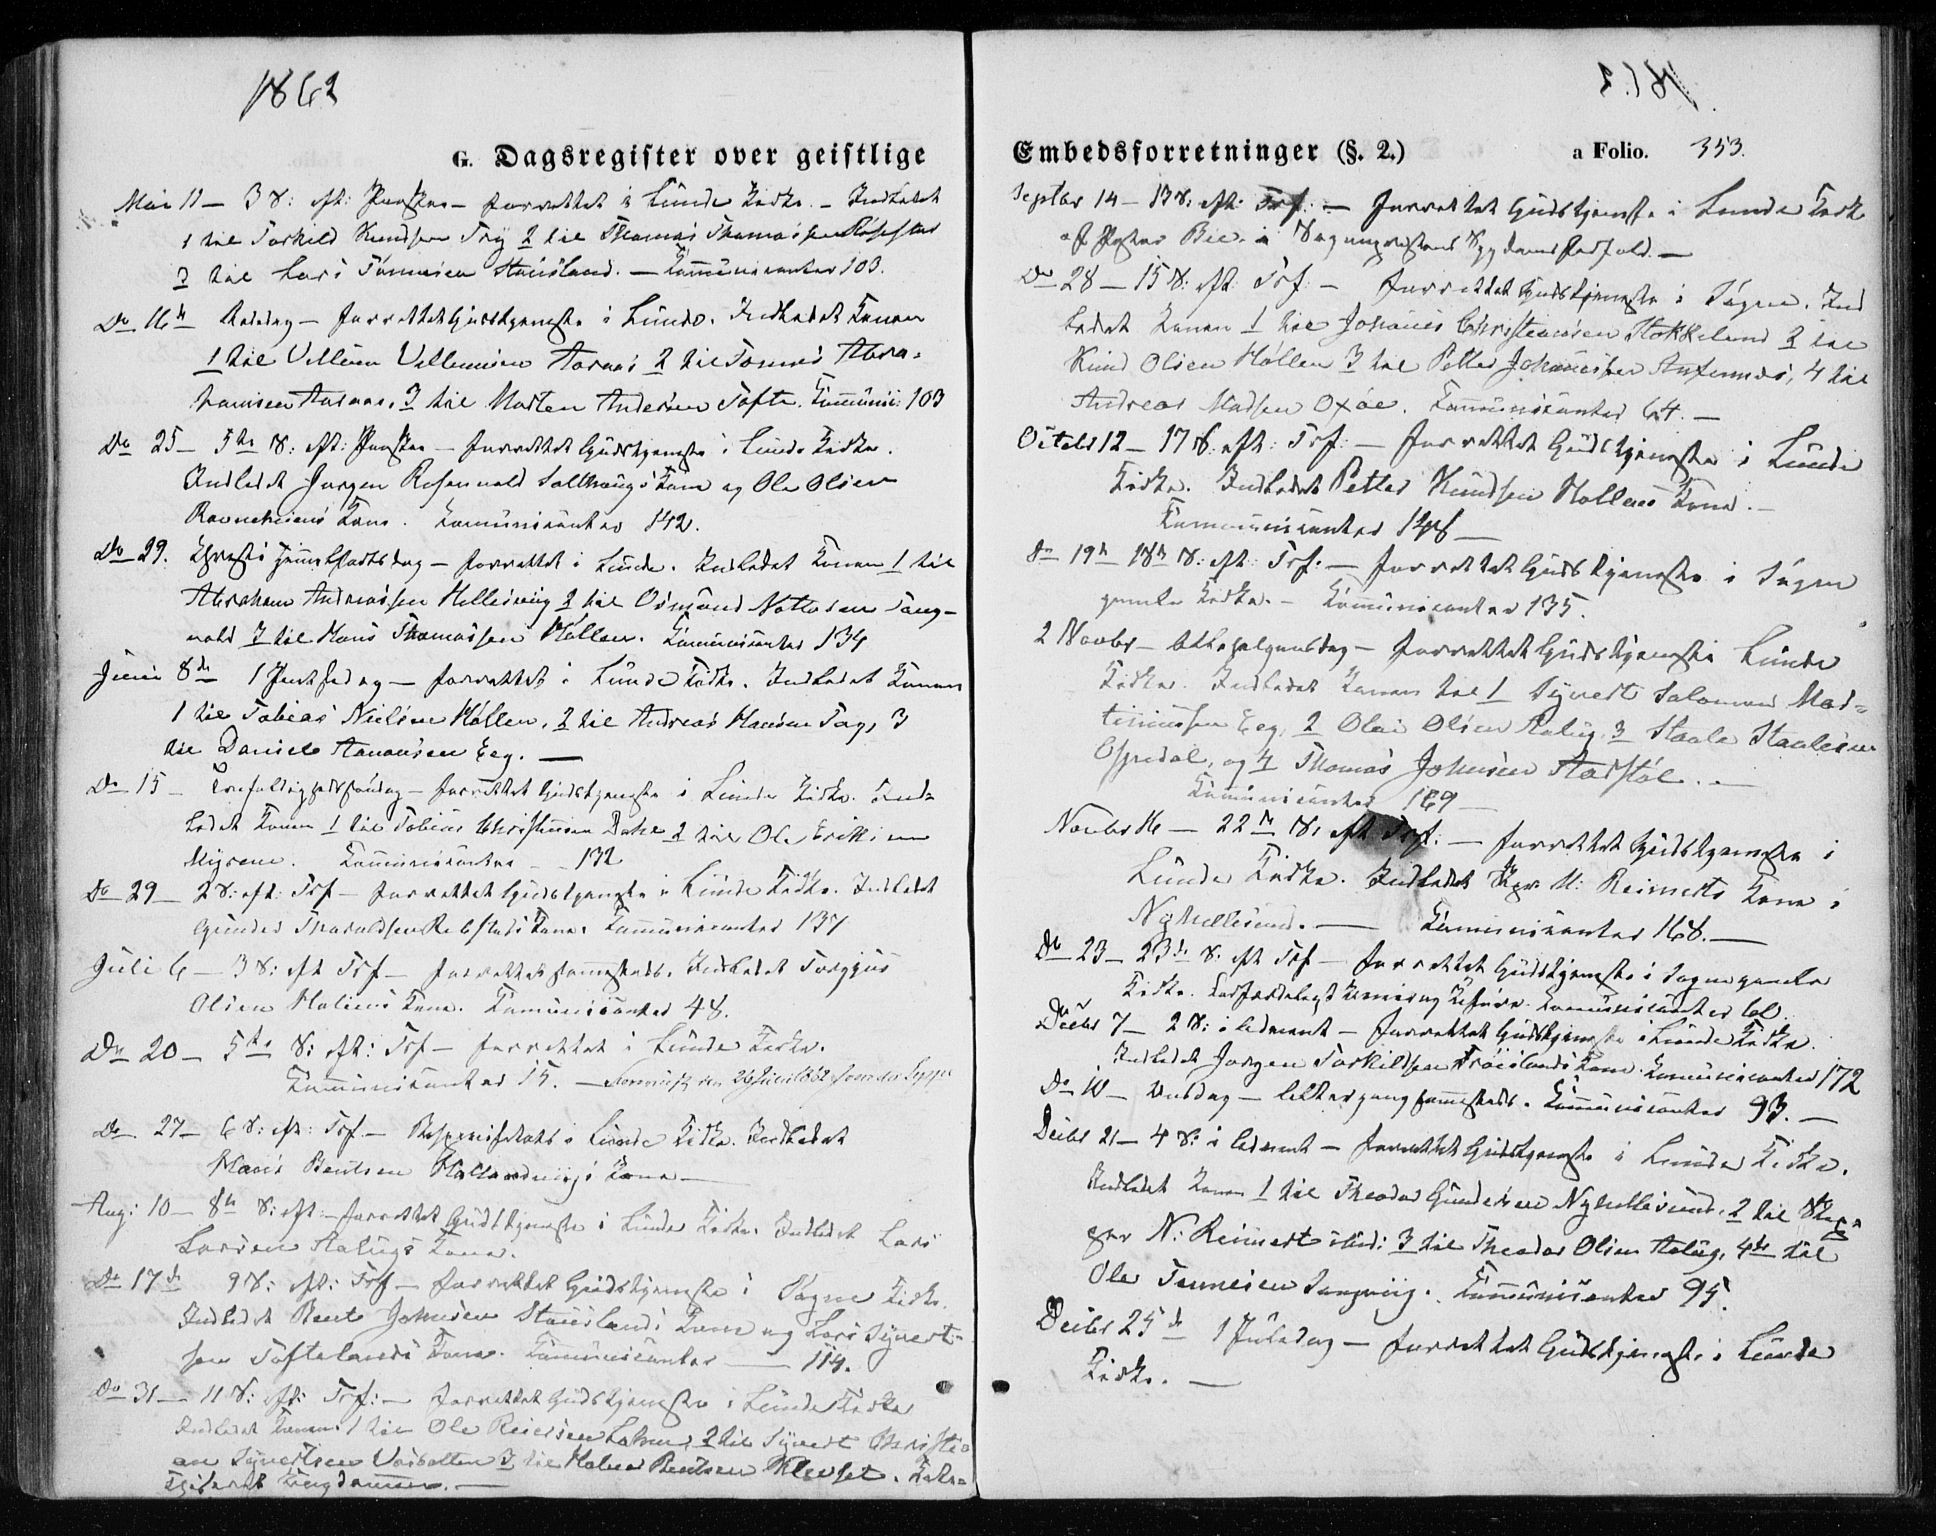 1862
G. Dagsregister over geistlige
Mai 11 — 3 S: eft: Paaske — forrettet i Lunde Kirke. — Indledet
1 til Torkild Knudsen Try 2 til Thomas Thomassen
3 til Lars Tønnesen Stausland. — Communicanter 103.
Do 16de Bededag — forrettet Gudstjeneste i Lunde. Indledet Konen
1 til Villum Villumsen Aaraas 2 til Tønnes Abra-
hamsen Aaraas, 3 til Morten Andersen Tofte. Communic: 103
Do 25 — 5te S: eft: Paaske — forrettet Gudstjeneste i Lunde Kirke.
Indledet Jørgen Rosenvold Salthaugs Kone og Ole Olsen
Ravneheiens Kone. Communicanter 142.
Do 29. Christi Himmelfartsdag — forrettet i Lunde. Indledet Konen 1 til
Abraham Andreassen Hellesvig 2 til Osmund Nottosen Tang-
vald 3 til Hans Thomassen Høllen. Communicanter 134
Juni 8de 1 Pintsedag — forrettet i Lunde Kirke. Indledet Konen
1 til Tobias Nielsen Høllen, 2 til Andreas Hansen Tag, 3
til Daniel Aanonsen Eeg. —
Do 15 — Trefoldighedssøndag — forrettet Gudstjeneste i Lunde Kirke. Ind-
ledet Konen 1 til Tobias Christensen Dahl 2 til Ole Eriksen
Myrene. Communicanter — 132
Do 29 — 2 S: eft: Trf — forrettet Gudstjeneste i Lunde Kirke. Indledet
Gunder Tharaldsen Repstads Kone. Communicanter 137
Juli 6 — 3 S: eft Trf — forrettet sammesteds. Indledet Torgjus
Olsen Høllens Kone. Communicanter 48.
Do 20 — 5te S: eft: Trf — forrettet i Lunde Kirke.
Communicanter 15. —
Do 27 — 6 S: eft: Trf. — i Lunde Kirke. Indledet
Hans Bentsen Kone —
Aug: 10 — 8de S: eft: — forrettet Gudstjeneste i Lunde Kirke. Indledet Lars
Larsen Aalugs Kone.
Do 17de 9 S: eft: Trf — forrettet Gudstjeneste i Søgne Kirke.
Indledet Bent Johnsen Stauslands Kone og Lars Syvert-
sen Toftelands Kone. Communicanter — 114.
Do 31 — 11 S: eft: Trf: — forrettet Gudstjeneste i Lunde Kirke
Indledet Konen 1 til Ole Reiersen Lohne, 2 til Syvert Christi-
an Syvertsen Vaabatten 3 til Halvor Bentsen Klevset. Kate-
chiseret Ungdommen. —
Embedsforretninger (§. 2.) a Folio. 353.
Septbr 14 — 13 S: eft: Trf: — forrettet Gudstjeneste i Lunde Kirke
af Pastor Bie i Sogneprestens Sygdomsforfald. —
Do 28 — 15 S: eft: Trf: — forrettet Gudstjeneste i Søgne. Ind
ledet Konen 1 til Johannes Christensen Stokkeland 2 til
Knud Olsen Høllen 3 til Petter Johannessen Aufennes, 4 til
Andreas Madsen Oxøe. Communicanter 64. —
Octobr 12 — 17 S. eft: Trf: — forrettet Gudstjeneste i Lunde
Kirke. Indledet Petter Knudsen Høllens Kone. —
Communicanter 148 —
Do 19de 18de S: eft: Trf. — forrettet Gudstjeneste i Søgne
gamle Kirke. — Communicanter 135.
2 Novbr — Allehelgensdag — forrettet Gudstjeneste Lunde
Kirke. Indledet Konen til 1 Syvert Salomon Mor-
tinussen Eeg, 2 Olai Olsen Aalug, 3 Staale Staalesen
Opredal, og 4 Thomas Johnsen Aarstøl. —
Communicanter 169 —
Novbr 16 — 22de S: eft Trf: — forrettet Gudstjeneste i
Lunde Kirke. Indledet N: Reimerts Kone i
Nyhellesund. — Communicanter 168. —
Do 23 — 23de S. eft Trf — forrettet Gudstjeneste i Sogne gamle
Kirke. Communicanter 60.
Decbr 7 — 2 S: i Advent — forrettet Gudstjeneste i Lunde Kirke.
Indledet Jørgen Torkildsen Trøislands Kone. Communicanter 172
Do 10 — Onsdag — Altergang sammesteds. Communicanter 93. —
Decbr 21 — 4 S: i Advent — forrettet Gudstjeneste i Lunde Kirke.
Indledet Konen 1 til Theodor Gundersen Nyhellesund, 2 til
N: Reimert ibid: 3 til Theodor Olsen Aalug, 4de til
Ole Tønnesen Langvig. Communicanter 95.
Decbr 25de 1 Juledag — forrettet Gudstjeneste i Lunde
Kirke. —